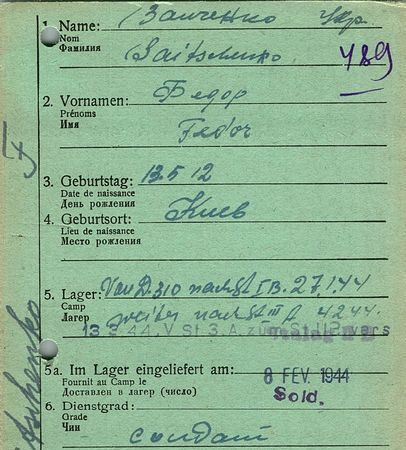 1. Name: Заиченко Укр.
Nom
Фамилия Saitschenko 789
2. Vornamen: Федор
Prénoms
Имя Fedor
3. Geburtstag: 13.5 12
Date de naissance
День рождения
4. Geburtsort: Киев
Lieu de naissance
Место рождения
5. Lager: Von D. 310 nach St I B. 27.1.44
Camp weiter nach St III A 4.2.44.
Лагер
13.3.44. V St. 3. A zum St. II
5a. Im Lager eingeliefert am: 8 FEV. 1944
Fournit au Camp le
Доставлен в лагер (число) Sold.
6. Dienstgrad:
Grade
Чин солдат